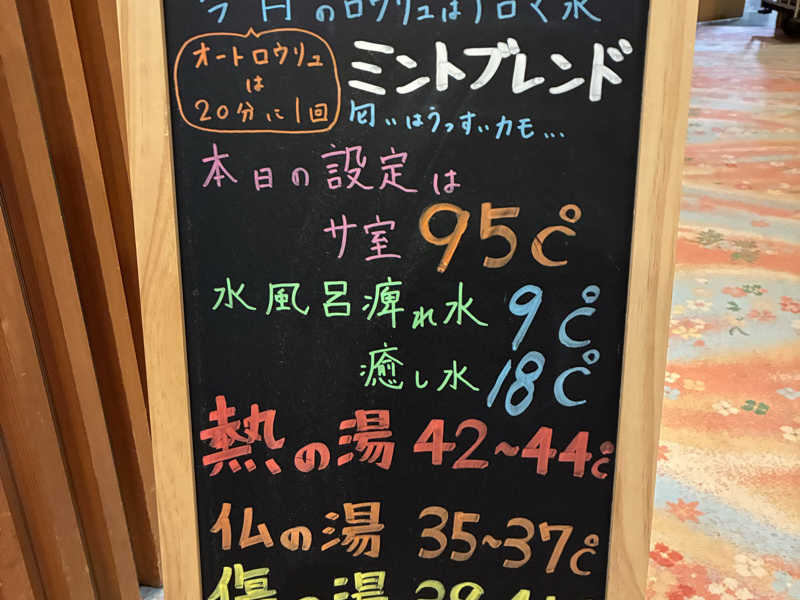 今月のロウリュはアロマ水
オートロウリュ
は
20分に1回
ミントブレンド
匂いはうっすぃカモ...
本日の設定は
サ室 95℃
水風呂痺れ水 9℃
癒し水 18℃
熱の湯 42~44℃
仏の湯 35~37℃
の湯